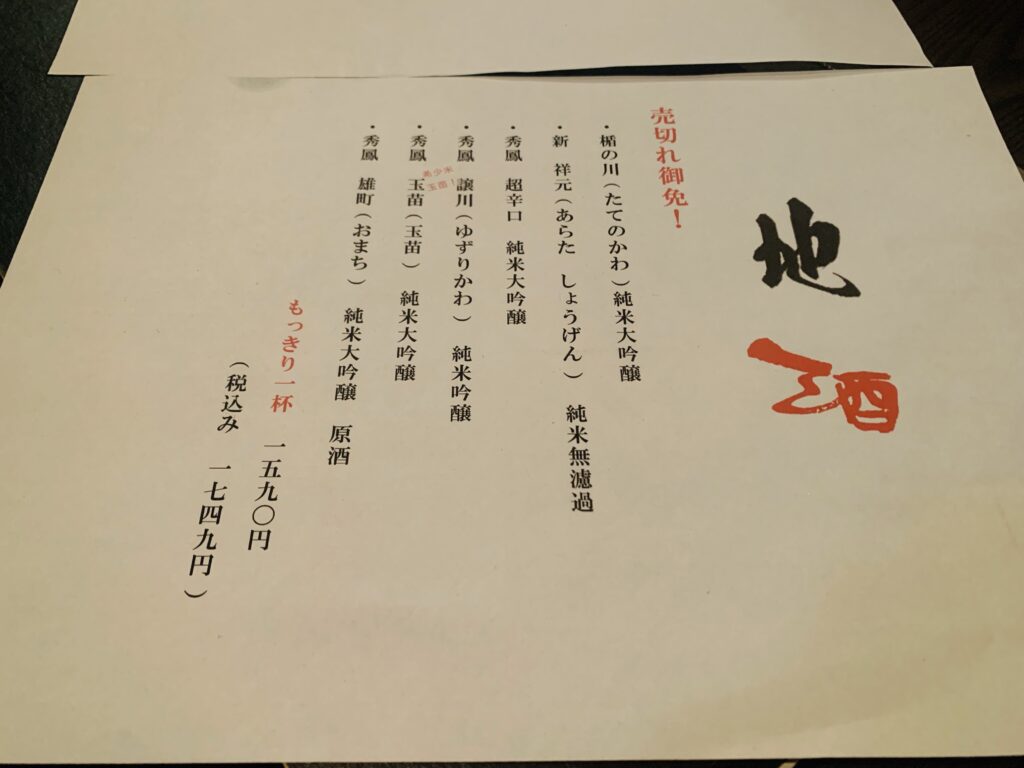 地酒
売切れ御免！
・楯の川（たてのかわ）純米大吟醸
・新　祥元（あらた　しょうげん）　純米無濾過
・秀鳳　超辛口　純米大吟醸
・秀鳳　譲川（ゆずりかわ）　純米吟醸
希少米
玉苗！
・秀鳳　玉苗（玉苗）　純米大吟醸
・秀鳳　雄町（おまち）　純米大吟醸　原酒
もっきり一杯　一五九〇円
（税込み　一七四九円）